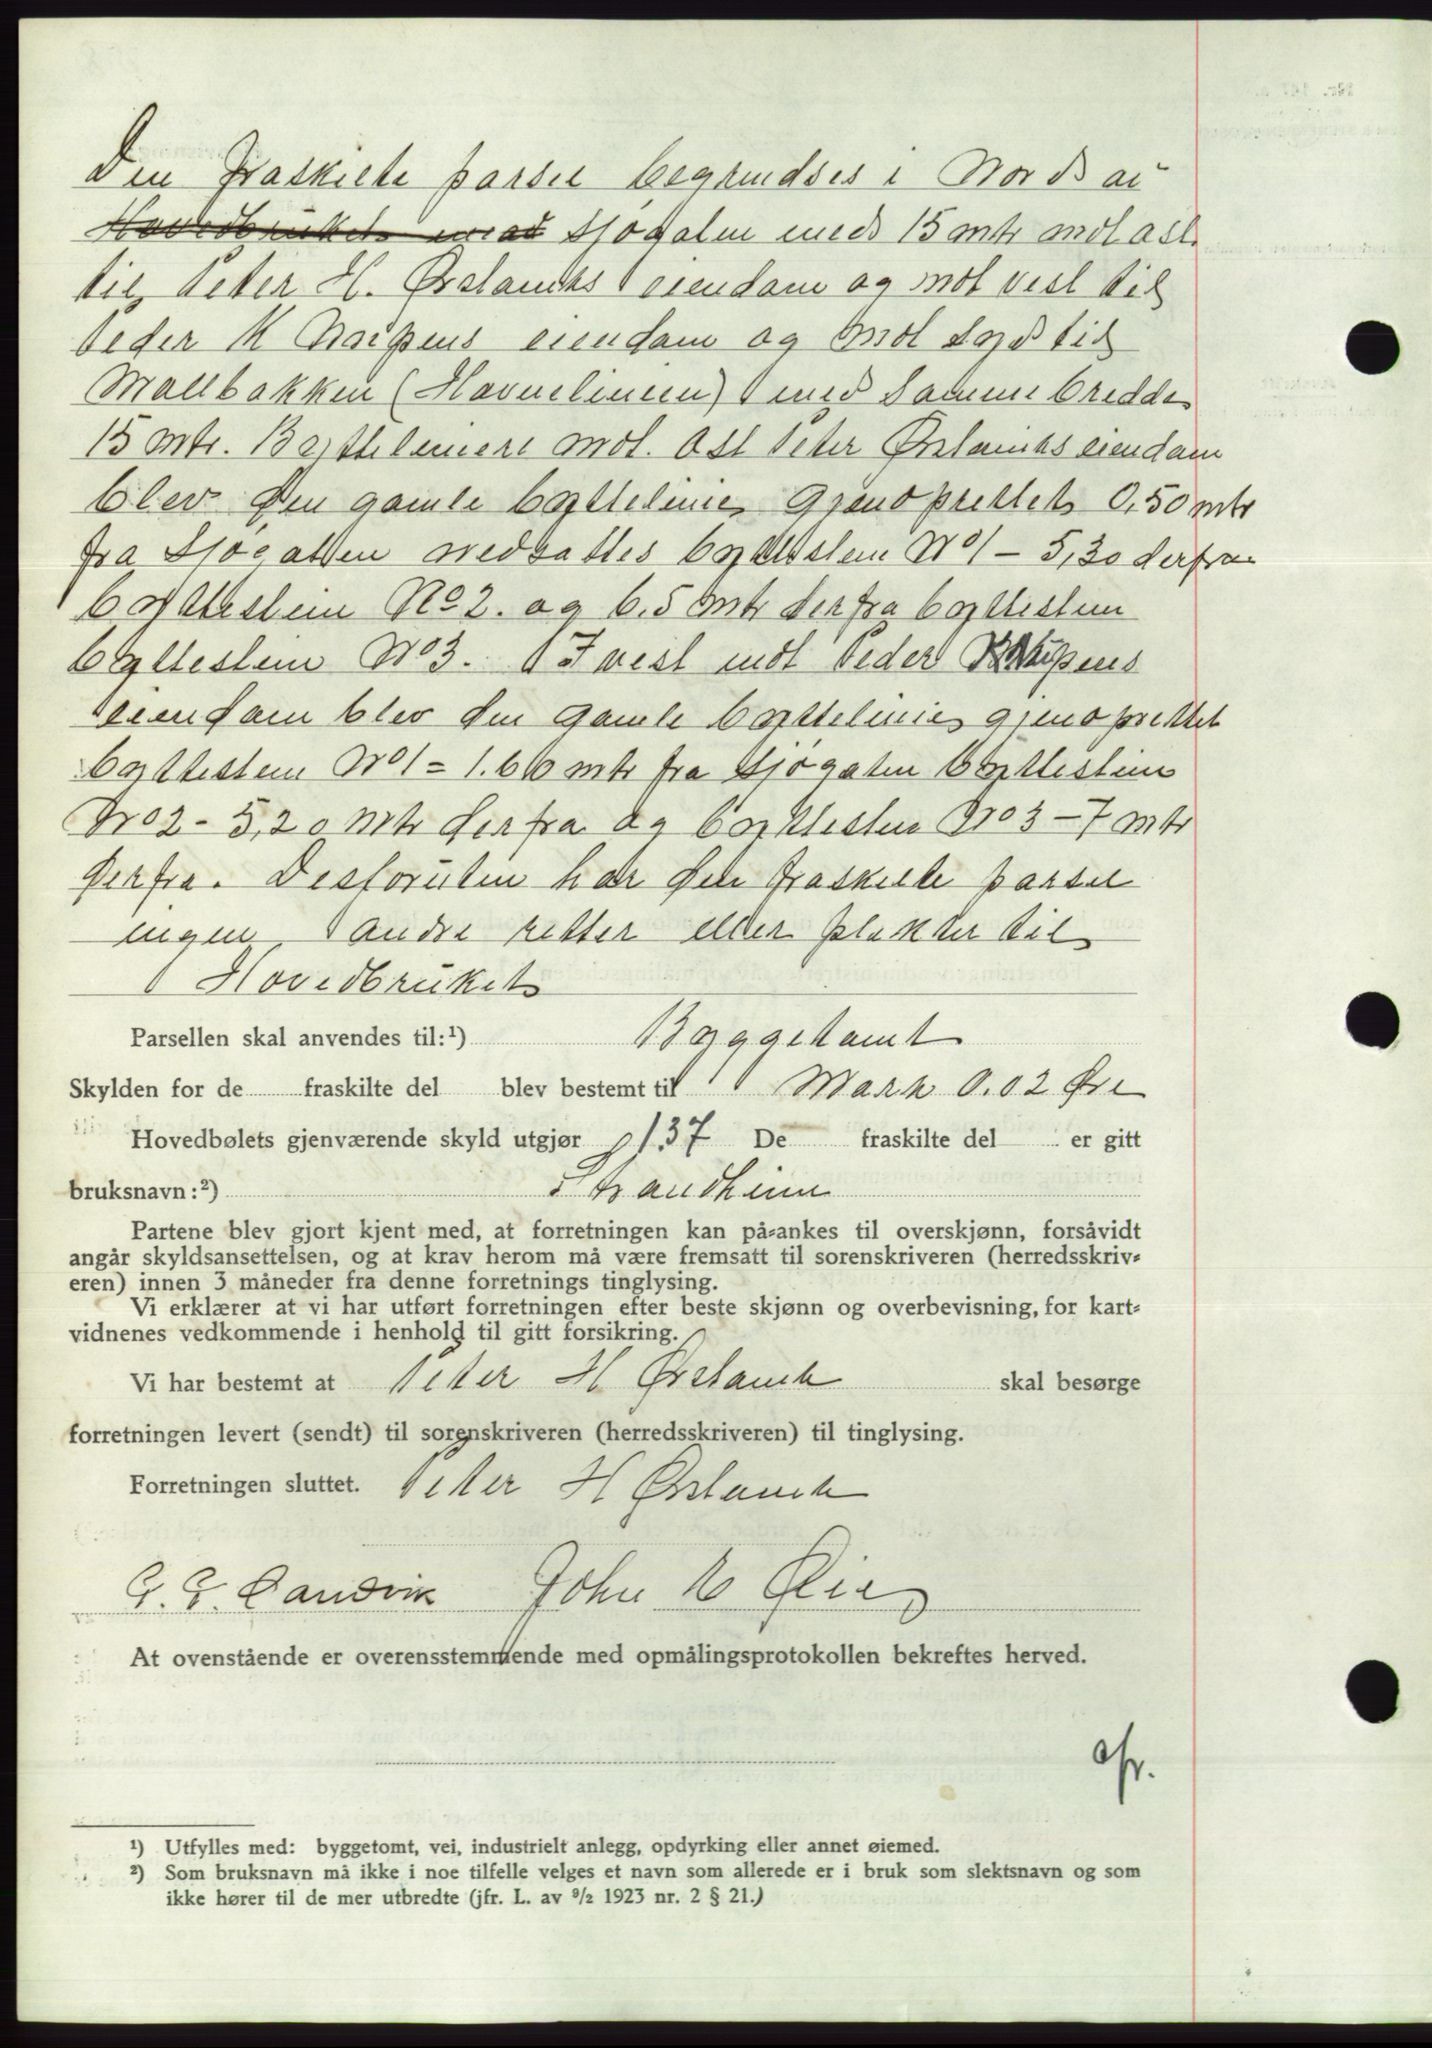 Den fraskilte parsel begrendses i Nord av
Hovedbruket med Sjøgaten med 15 mtr mot ost
til Peter H. Ørstaviks eiendom og mot vest til
Peder K eiendom og mot Syd til
Mollbakken (Havnelinien) med samme bredde
15 mtr. Bytteliniere mot. Ost Peter Ørstaviks eiendom
blev den gamle byttelinie gjenoprettet 0,50 mtr
fra Sjøgaten nedsattes byttestein No 1 – 5,30 derfra
byttestein No 2. og 6.5 mtr derfra byttestein
byttestein No 3. I vest mot Peder
eiendom blev den gamle byttelinie gjenoprettet
byttestein No 1 = 1.60 mtr fra Sjøgaten byttestein
No 2 - 5,20 mtr derfra og byttestein No 3 – 7 mtr
derfra. Desforuten har den fraskilte parsel
ingen andre retter eller plikter til
Hovedbruket
Parsellen skal anvendes til:¹) Byggetomt
Skylden for de fraskilte del blev bestemt til Mark 0.02 Øre
Hovedbølets gjenværende skyld utgjør 1.37 De fraskilte del er gitt
bruksnavn:²) Strandheim
Partene blev gjort kjent med, at forretningen kan på-ankes til overskjønn, forsåvidt
angår skyldsansettelsen, og at krav herom må være fremsatt til sorenskriveren (herredsskriv-
eren) innen 3 måneder fra denne forretnings tinglysing.
Vi erklærer at vi har utført forretningen efter beste skjønn og overbevisning, for kart-
vidnenes vedkommende i henhold til gitt forsikring.
Vi har bestemt at Peter H Ørstavik skal besørge
forretningen levert (sendt) til sorenskriveren (herredsskriveren) til tinglysing.
Forretningen sluttet. Peter H Ørstavik
G. G. Sandvik John E Øie
At ovenstående er overensstemmende med opmålingsprotokollen bekreftes herved.
¹) Utfylles med: byggetomt, vei, industrielt anlegg, opdyrking eller annet øiemed.
²) Som bruksnavn må ikke i noe tilfelle velges et navn som allerede er i bruk som slektsnavn og som
ikke hører til de mer utbredte (jfr. L. av ⁹/₂ 1923 nr. 2 § 21.)